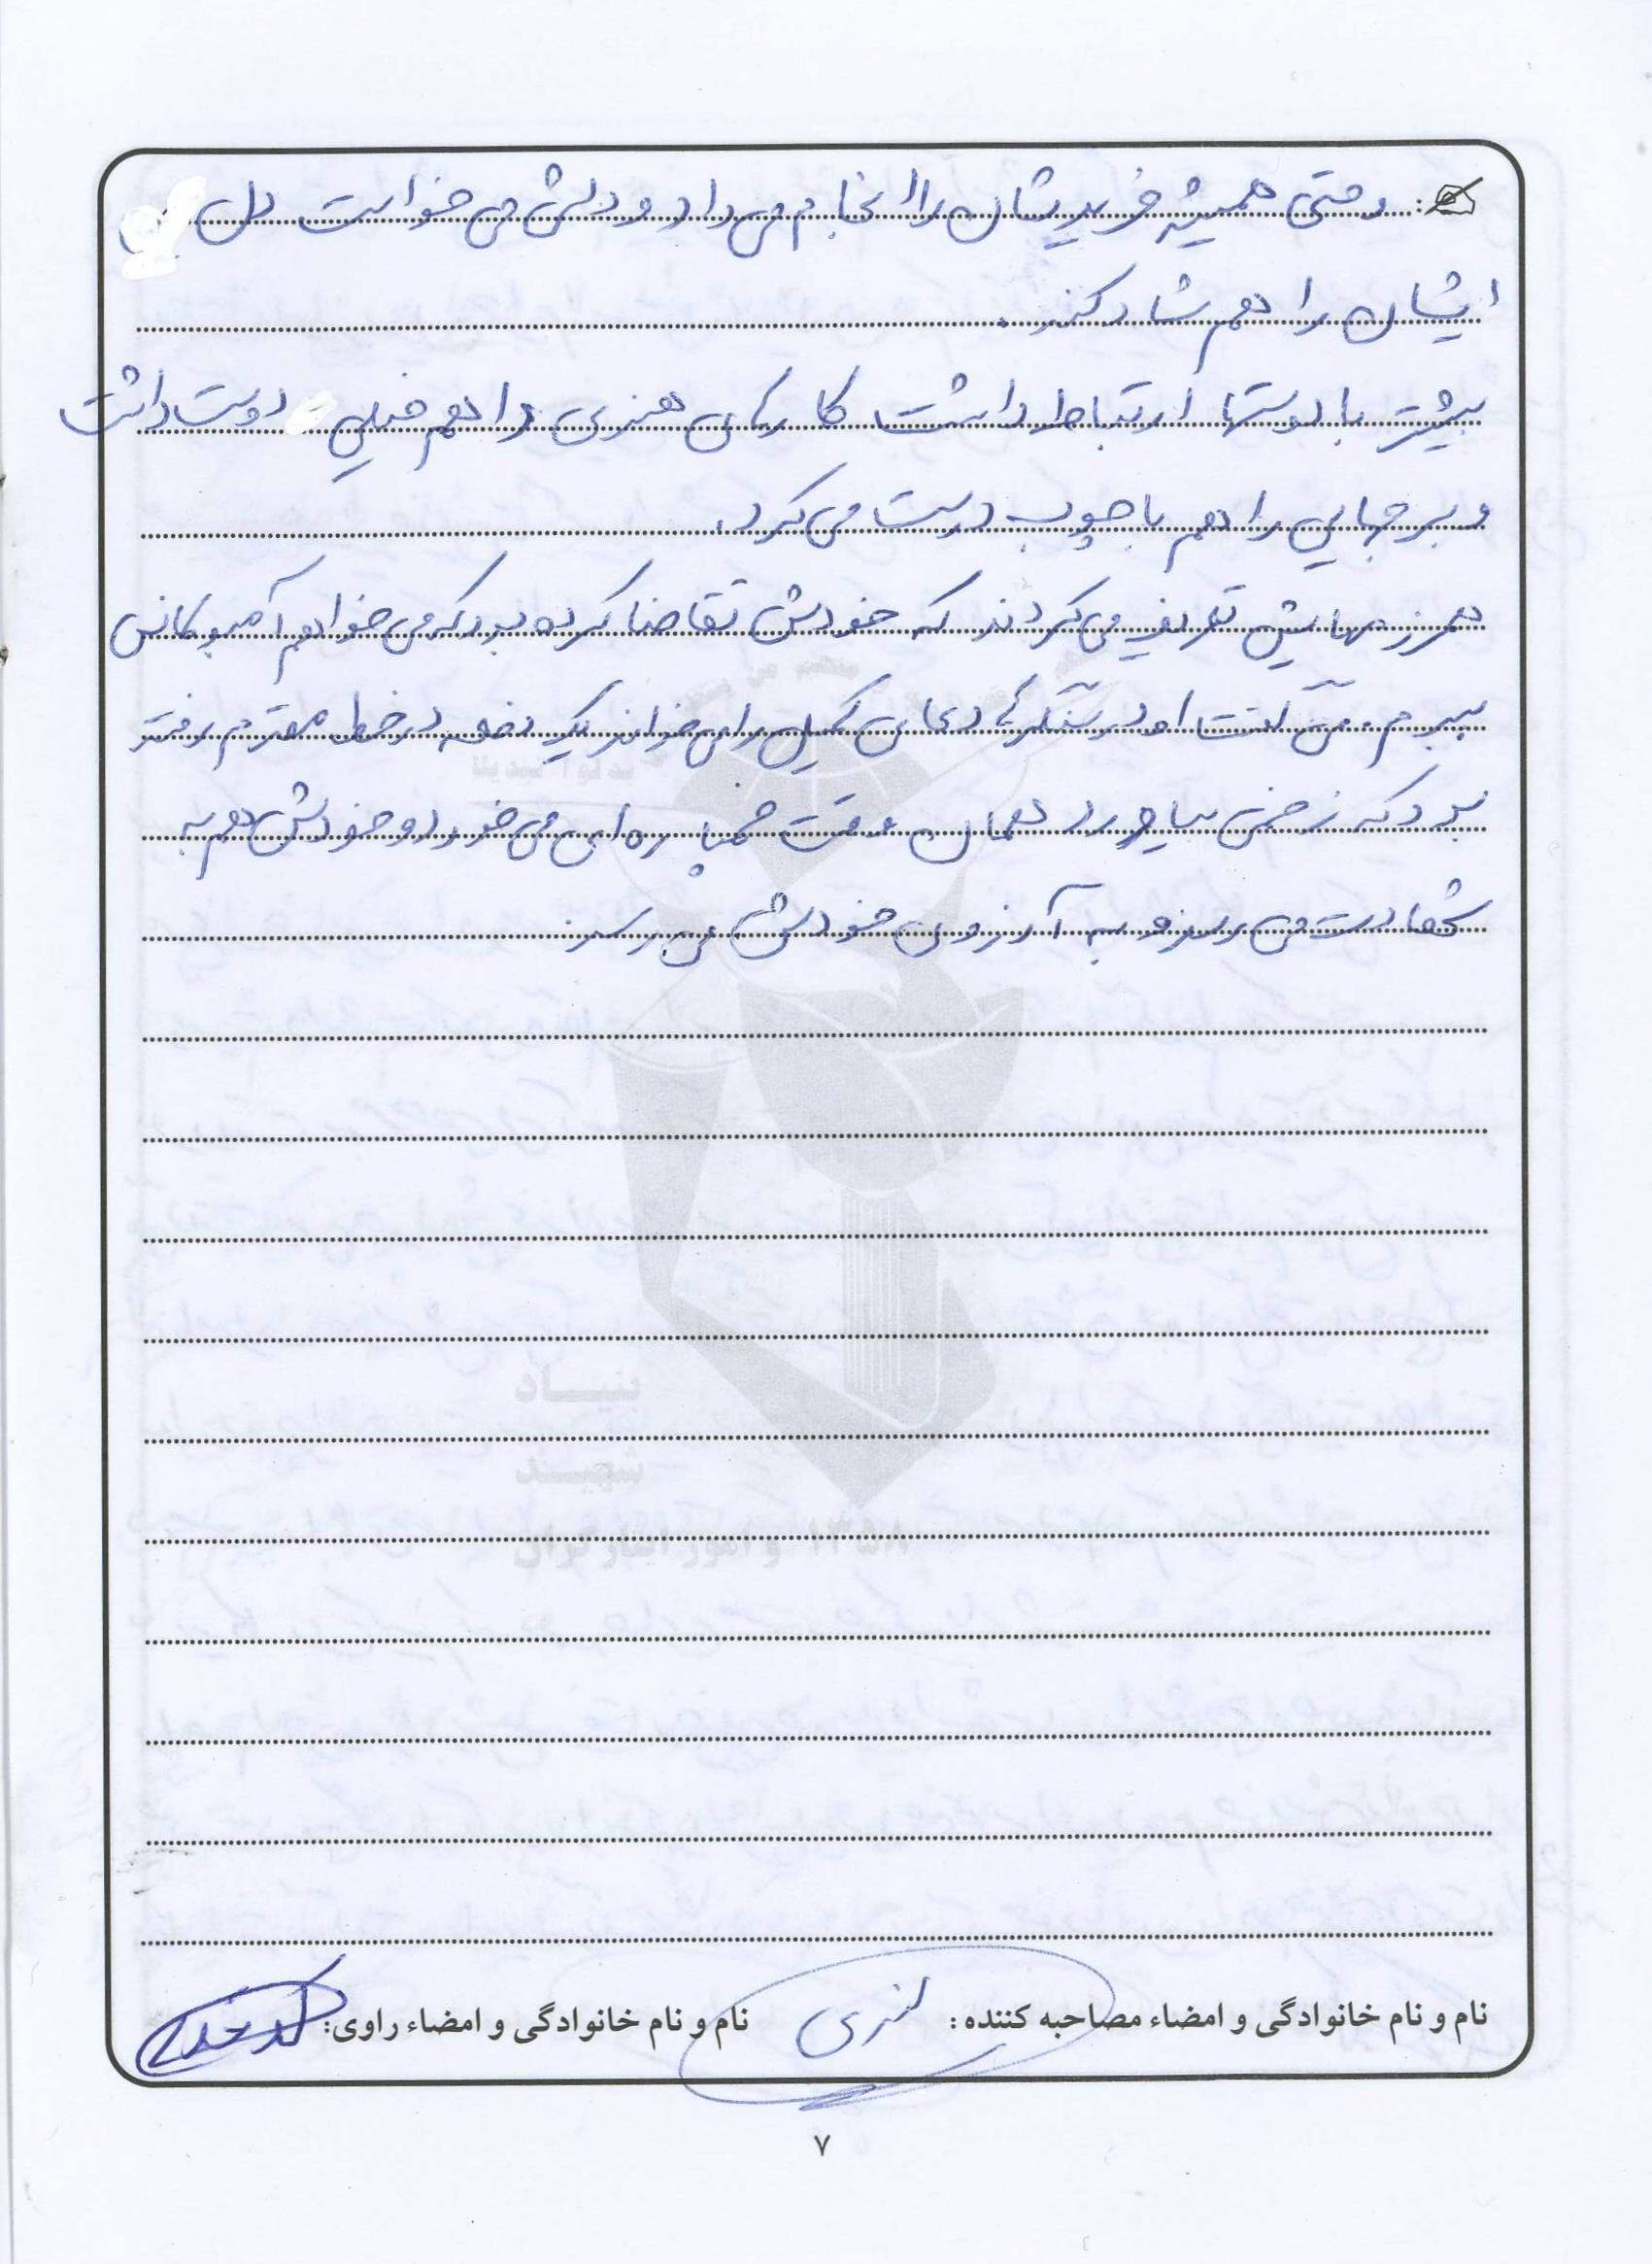 و حتی همیشه خریدیشان را انجام می داد و دلش می خواست دل
ایشان را هم شاد کند.
بیشتر با دوستها ارتباط داشت کارهای هنری را هم خیلی دوست داشت
و برجهایی را هم با چوب درست می کرد.
همرزمهایش تعریف می کردند که خودش تقاضا کرده بود که می خواهم آمبولانس
ببرم. می گفت او در سنگرها دعای کمیل را می خواند یک دفعه در خط مقدم رفته
بود که زخمی بیاورد همان وقت خمپاره ای می خورد و خودش هم به
شهادت می رسد و به آرزوی خودش می رسد.
بنیاد
شهید
و امور ایثارگران ۱۳۵۸
نام و نام خانوادگی و امضاء مصاحبه کننده: نام و نام خانوادگی و امضاء راوی:
۷